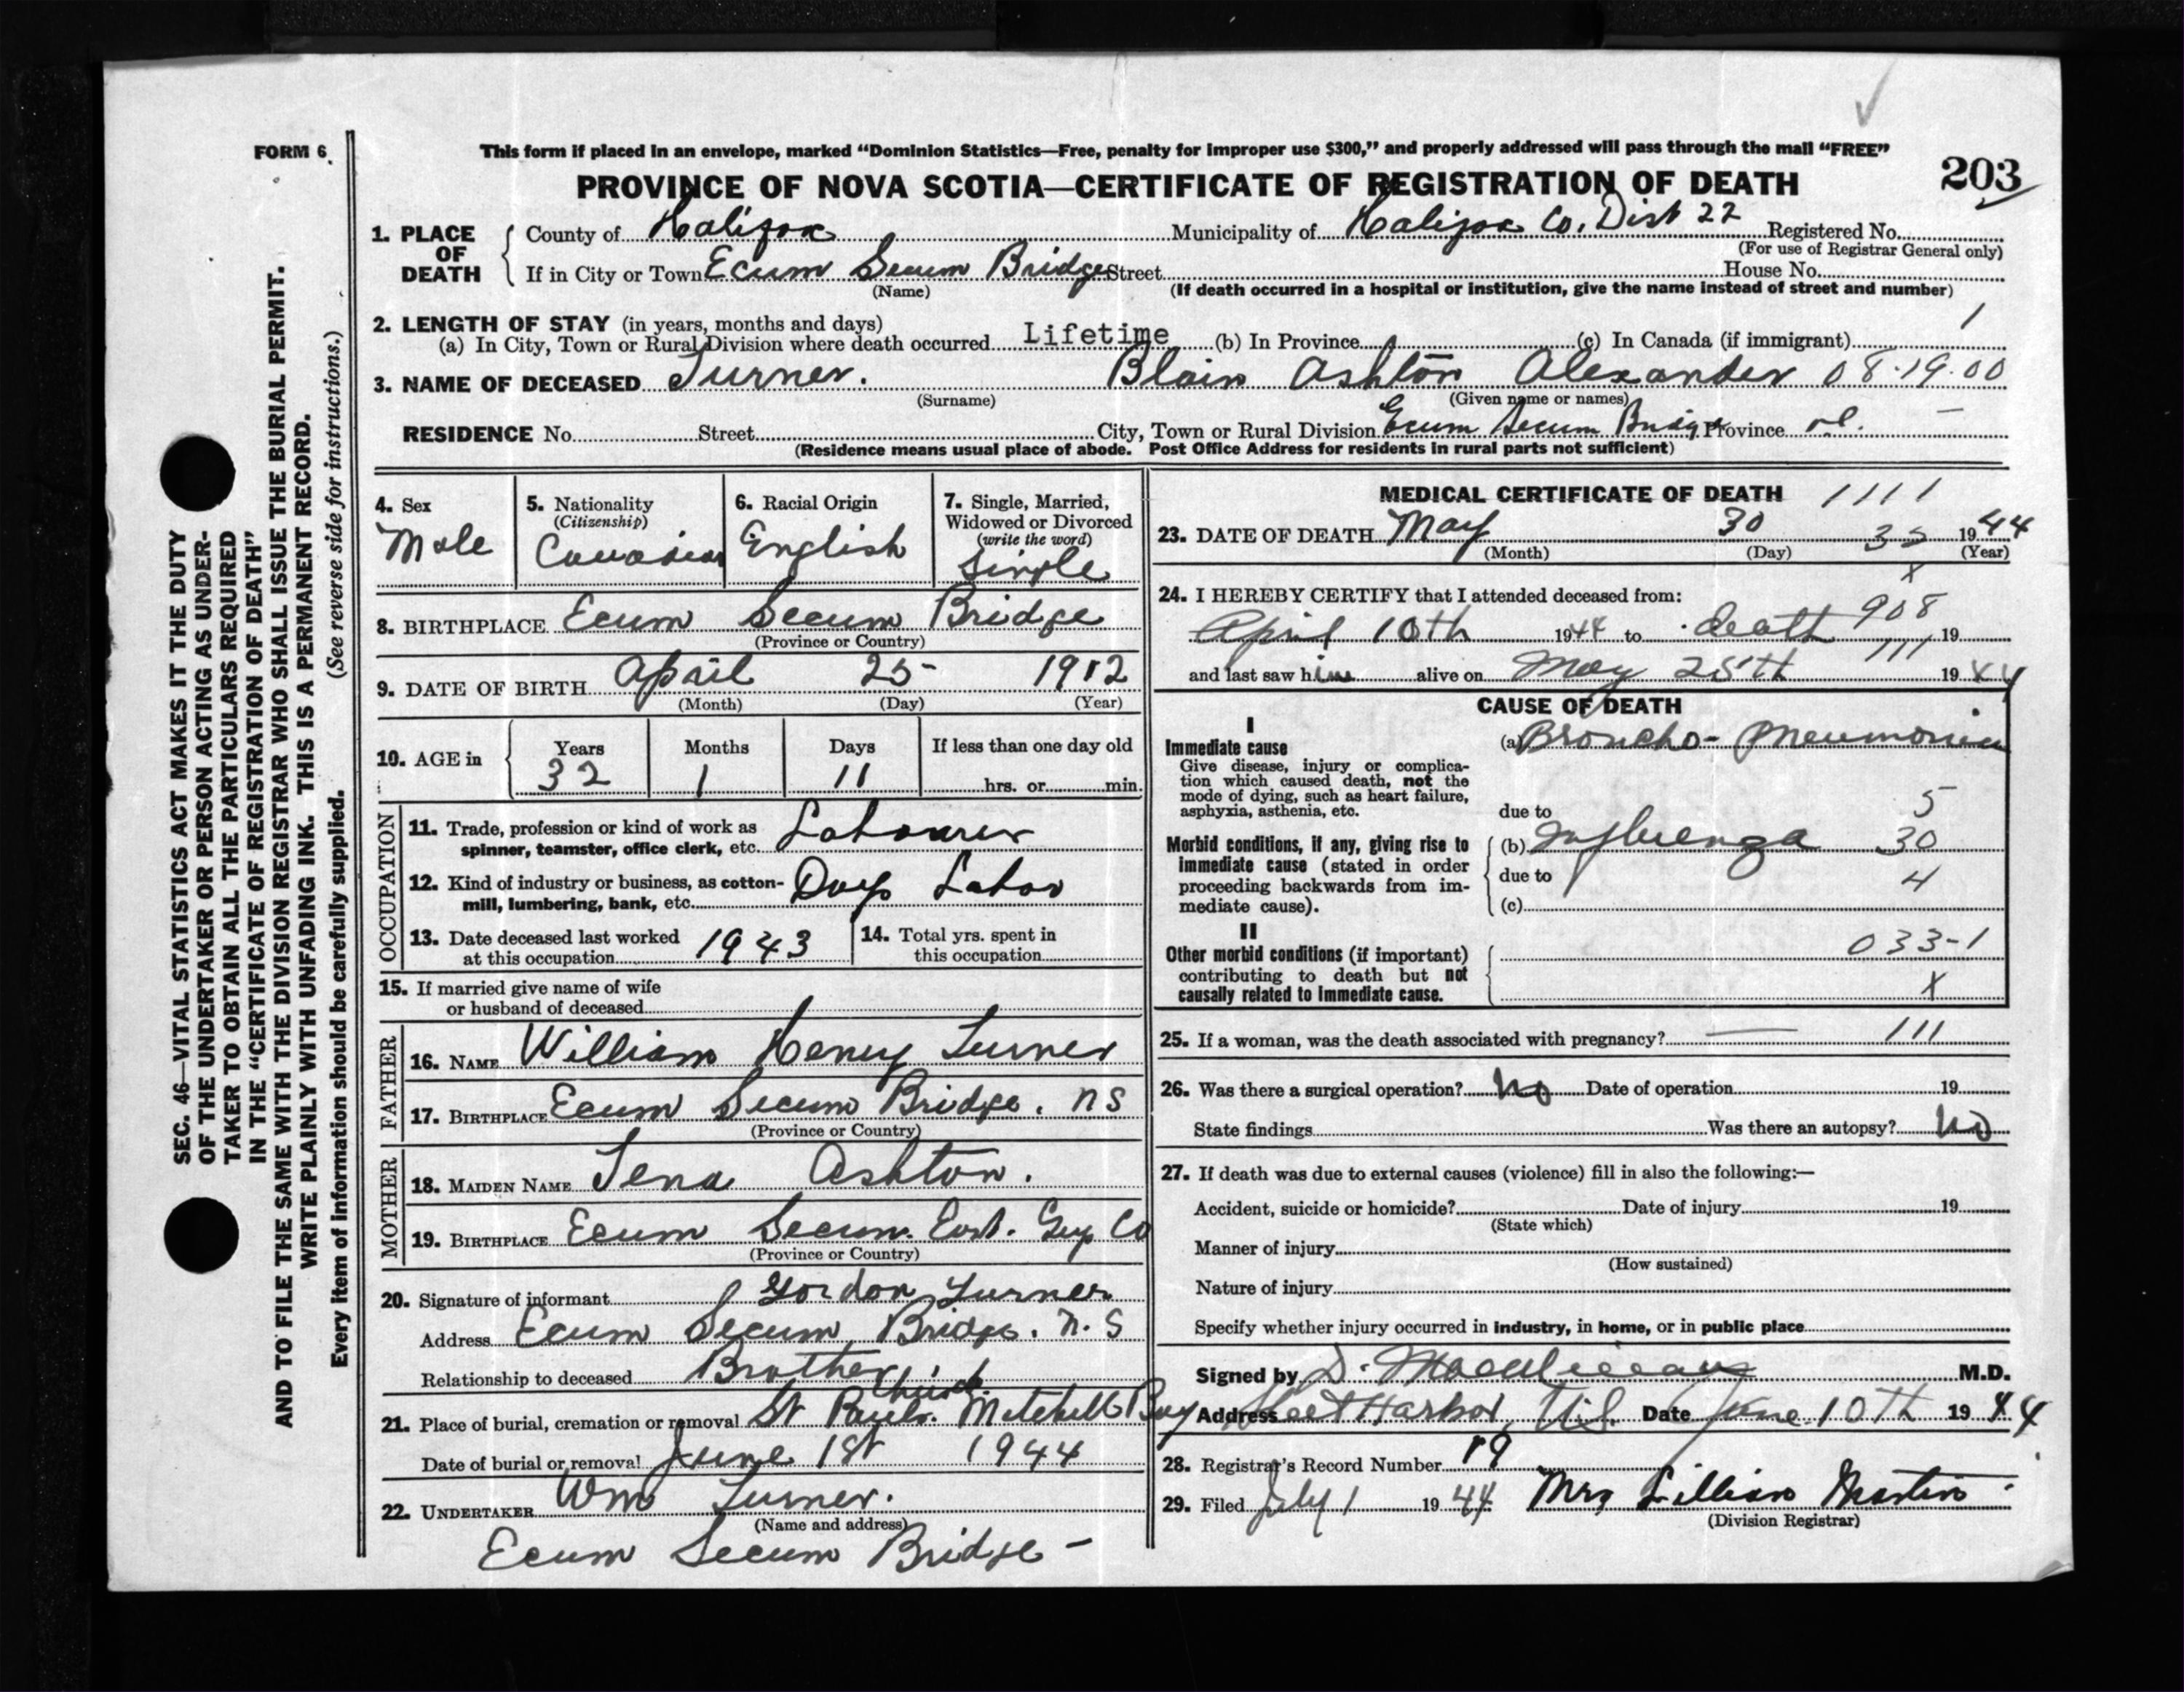 FORM 6.
This form if placed in an envelope, marked “Dominion Statistics—Free, penalty for improper use $300,” and properly addressed will pass through the mail “FREE”
PROVINCE OF NOVA SCOTIA—CERTIFICATE OF REGISTRATION OF DEATH
203
SEC. 46—VITAL STATISTICS ACT MAKES IT THE DUTY
OF THE UNDERTAKER OR PERSON ACTING AS UNDER-
TAKER TO OBTAIN ALL THE PARTICULARS REQUIRED
IN THE “CERTIFICATE OF REGISTRATION OF DEATH”
AND TO FILE THE SAME WITH THE DIVISION REGISTRAR WHO SHALL ISSUE THE BURIAL PERMIT.
WRITE PLAINLY WITH UNFADING INK. THIS IS A PERMANENT RECORD.
Every item of information should be carefully supplied. (See reverse side for instructions.)
1. PLACE OF DEATH County of Halifax Municipality of Halifax Co. Dist 22 Registered No.
(For use of Registrar General only)
If in City or Town Ecum Secum Bridge Street House No.
(Name) (If death occurred in a hospital or institution, give the name instead of street and number)
2. LENGTH OF STAY (in years, months and days) 1
(a) In City, Town or Rural Division where death occurred Lifetime (b) In Province (c) In Canada (if immigrant)
3. NAME OF DECEASED Turner. Blain Ashton Alexander 08.19.00
(Surname) (Given name or names)
RESIDENCE No. Street City, Town or Rural Division Ecum Secum Bridge Province
(Residence means usual place of abode. Post Office Address for residents in rural parts not sufficient)
4. Sex
Male
5. Nationality
(Citizenship)
Canadian
6. Racial Origin
English
7. Single, Married,
Widowed or Divorced
(write the word)
Single
8. BIRTHPLACE Ecum Secum Bridge
(Province or Country)
9. DATE OF BIRTH April 25 1912
(Month) (Day) (Year)
10. AGE in Years Months Days If less than one day old
32 1 11 hrs. or min.
OCCUPATION
11. Trade, profession or kind of work as
spinner, teamster, office clerk, etc. Labourer
12. Kind of industry or business, as cotton-
mill, lumbering, bank, etc. Days Labor
13. Date deceased last worked
at this occupation 1943
14. Total yrs. spent in
this occupation
15. If married give name of wife
or husband of deceased
FATHER
16. NAME William Henry Turner
17. BIRTHPLACE Ecum Secum Bridge. NS
(Province or Country)
MOTHER
18. MAIDEN NAME Tena Ashton.
19. BIRTHPLACE Ecum Secum. East. Guy Co
(Province or Country)
20. Signature of informant Gordon Turner
Address Ecum Secum Bridge. N.S
Relationship to deceased Brother
21. Place of burial, cremation or removal St Pauls. Church. Mitchell Bay
Date of burial or removal June 1st 1944
22. UNDERTAKER Wm Turner.
(Name and address)
Ecum Secum Bridge -
MEDICAL CERTIFICATE OF DEATH 1111
23. DATE OF DEATH May 30 32 1944
(Month) (Day) (Year)
x
24. I HEREBY CERTIFY that I attended deceased from:
908
April 10th 1944 to death 19
111
and last saw him alive on May 25th 1944
CAUSE OF DEATH
I
Immediate cause
Give disease, injury or complica-
tion which caused death, not the
mode of dying, such as heart failure,
asphyxia, asthenia, etc.
(a) Broncho-Pneumonia
due to 5
Morbid conditions, if any, giving rise to
immediate cause (stated in order
proceeding backwards from im-
mediate cause).
(b) Influenza 30
due to 4
(c)
II
Other morbid conditions (if important)
contributing to death but not
causally related to immediate cause.
033-1
x
25. If a woman, was the death associated with pregnancy? — 111
26. Was there a surgical operation? No Date of operation 19
State findings Was there an autopsy? No
27. If death was due to external causes (violence) fill in also the following:—
Accident, suicide or homicide? Date of injury 19
(State which)
Manner of injury
(How sustained)
Nature of injury
Specify whether injury occurred in industry, in home, or in public place
Signed by D. M.D.
Address Sheet Harbor, N.S. Date June 10th 1944
28. Registrar's Record Number 19
29. Filed July 1 1944 Mrs Lillian Martin
(Division Registrar)